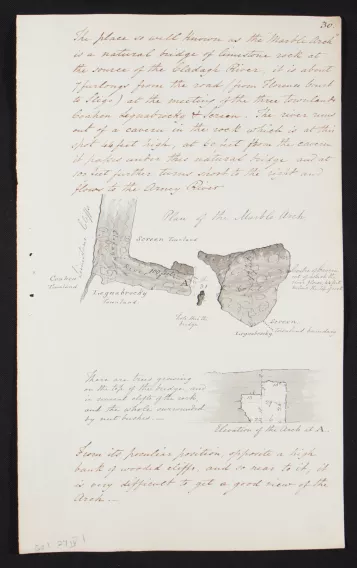 30.
The place so well known as the Marble Arch
is a natural bridge of limestone rock at
the source of the Cladagh River, it is about
7 furlongs from the road (from Florence Court
to Sligo) at the meeting of the three townlands
& Screen. The river runs
out of a cavern in the rock which is at this
spot high, at 60 feet from the cavern
it passes under this natural bridge and at
100 feet further turns short to the right and
flows to the Arney River
Plan of the Marble Arch
Limestone Cliffs
Screen Townland
Townland
Townland
A
bridge
Screen
Townland boundary
There are trees growing
on the top of the bridge, and
in several clefts of the rock,
and the whole surrounded
by nut bushes.—
Elevation of the Arch at A.
From its peculiar position, opposite a high
bank of wooded cliffs, and so near to it, it
is very difficult to get a good view of the
Arch.—